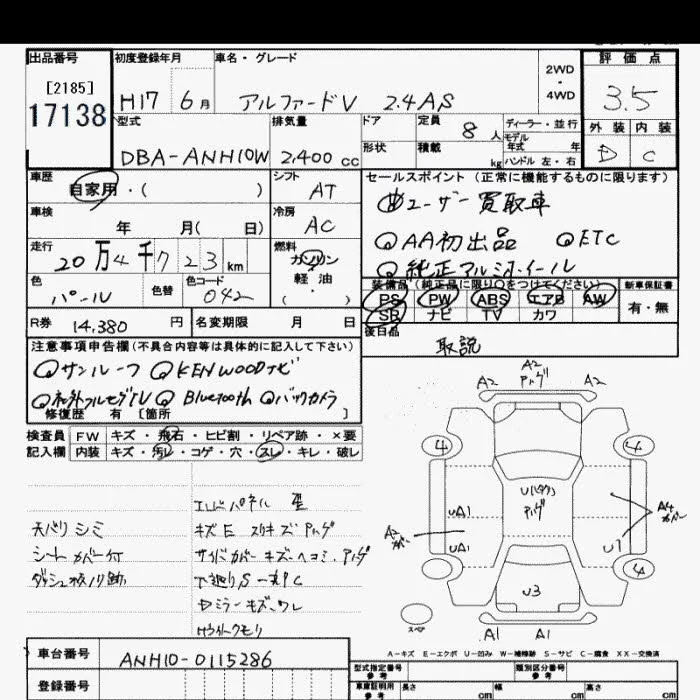 出品番号 初度登録年月 車名・グレード 2WD・4WD 評価点
[2185]
17138 H17 6月 アルファードV 2.4AS 3.5
型式 排気量 ドア 定員 8人 ディーラー・並行 外装 内装
形状 積載 kg モデル年式 年 ハンドル 左・右
DBA-ANH10W 2,400 cc D C
車歴 自家用・( ) シフト AT セールスポイント(正常に機能するものに限ります)
ユーザー買取車
車検 年 月( 日) 冷房 AC
AA初出品 ETC
走行 20万4千723km 燃料 ガソリン 軽油・( )
純正アルミホイール
色 パール 色替 色コード 042
装備品(純正品に限り○をつけてください) 新車保証書
PS PW ABS エアB AW 有・無
SR ナビ TV カワ
R券 14,380円 名変期限 月 日 後日品
取説
注意事項申告欄(不具合内容等は具体的に記入して下さい)
サンルーフ KENWOODナビ
社外フルセグTV Bluetooth バックカメラ
修復歴 有 [箇所 ]
検査員記入欄 FW キズ・飛石・ヒビ割・リペア跡・×要
内装 キズ・汚レ・コゲ・穴・スレ・キレ・破レ
天バリシミ
シートカバー付
キズE スリキズ アリゲ
サイドカバー キズ・ヘコミ・アリゲ
A2 A2 A2
4 4
UA1 UA1 U1 A4
4
U3
スペア
A1 A1
A-キズ E-エクボ U-凹み W-補修跡 S-サビ C-腐食 XX-交換済
車台番号 ANH10-0115286
登録番号
型式指定番号 参考 類別区分番号 参考
車庫証明用 参考 長さ cm 幅 cm 高さ cm